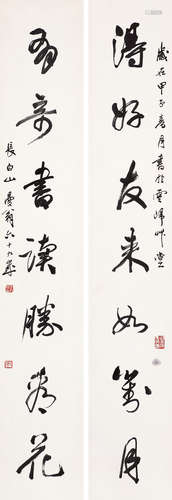 得好友来如對月
歲在甲子春月書於雲峰艸堂
有奇書讀勝看花
長白山 六十九歲